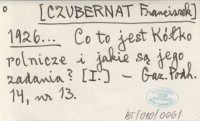 [CZUBERNAT Franciszek]
1926... Co to jest Kółko
rolnicze i jakie są jego
zadania? [I.] — Gaz. Podh.
14, nr 13.
BT/010/0061